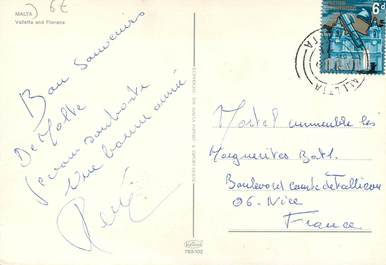 6€
MALTA
Valletta and Floriana
Bon Souvenirs
De Malte
Je vous souhaite
Une bonne année
René
COPYRIGHT: THE
6d
VALLETTA
MALTA
Martel immeuble les
Marguerites Bat1.
Boulevard comte de Falicon
06. Nice
France
783/102